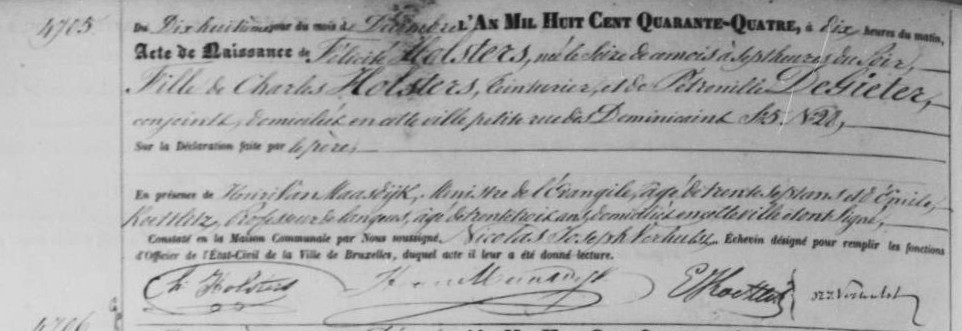 4705
Du Dix huitième jour du mois de Décembre L'AN MIL HUIT CENT QUARANTE-QUATRE, à dix heures du matin,
Acte de Naissance de Félicité Holsters, née le Seize de ce mois à sept heures du Soir,
Fille de Charles Holsters, teinturier, et de Pétronille DeGieter,
conjoints, domiciliés en cette ville petite rue des Dominicains S.5. N.20,
Sur la Déclaration faite par le père,
En présence de Henri Van Maasdijk, Ministre de l'Évangile, âgé de trente sept ans et d'Émile
Professeur de langues, âgé de trente trois ans, domiciliés en cette ville et ont Signé,
Constaté en la Maison Communale par Nous soussigné, Nicolas Joseph Verhulst, Échevin désigné pour remplir les fonctions
d'Officier de l'État-Civil de la Ville de Bruxelles, duquel acte il leur a été donné lecture.
Ch Holsters
4706